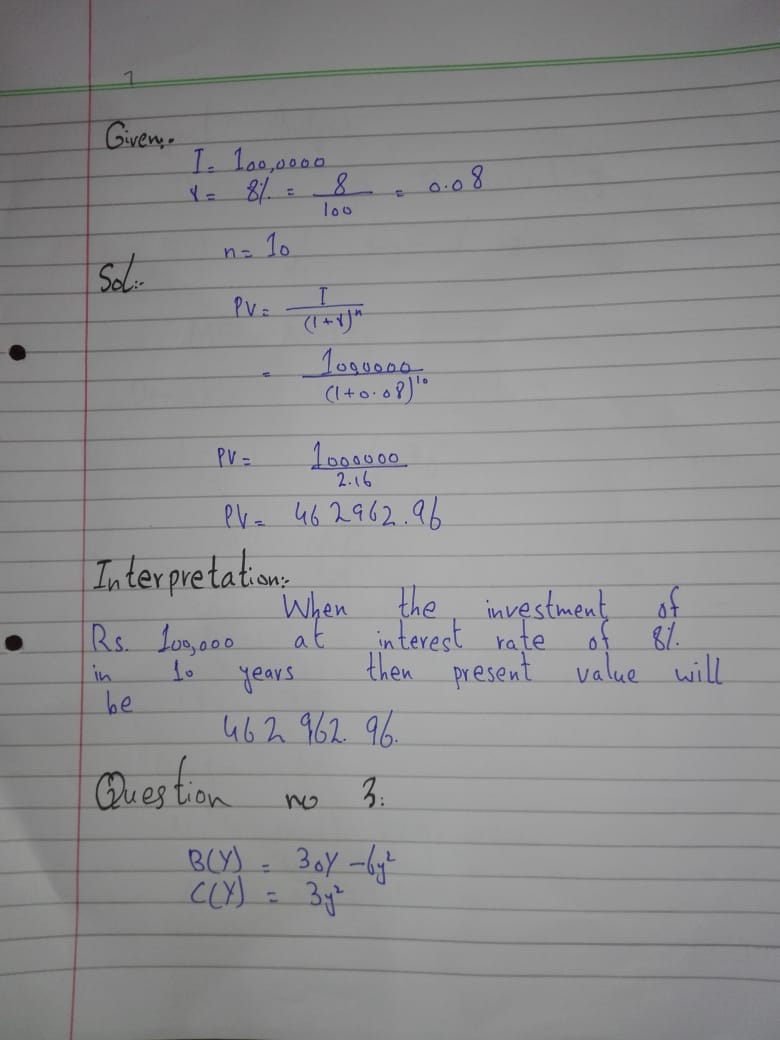 1
Given:-
I = 100,0000
r = 8% = 8/100 = 0.08
n = 10
Sol:-
PV = I/(1+r)^n
= 1000000/(1+0.08)^10
PV = 1000000/2.16
PV = 462962.96
Interpretation:-
When the investment of
Rs. 100,000 at interest rate of 8%.
in 10 years then present value will
be
462962.96.
Question no 3:
B(Y) = 30Y - 6y²
C(Y) = 3y²